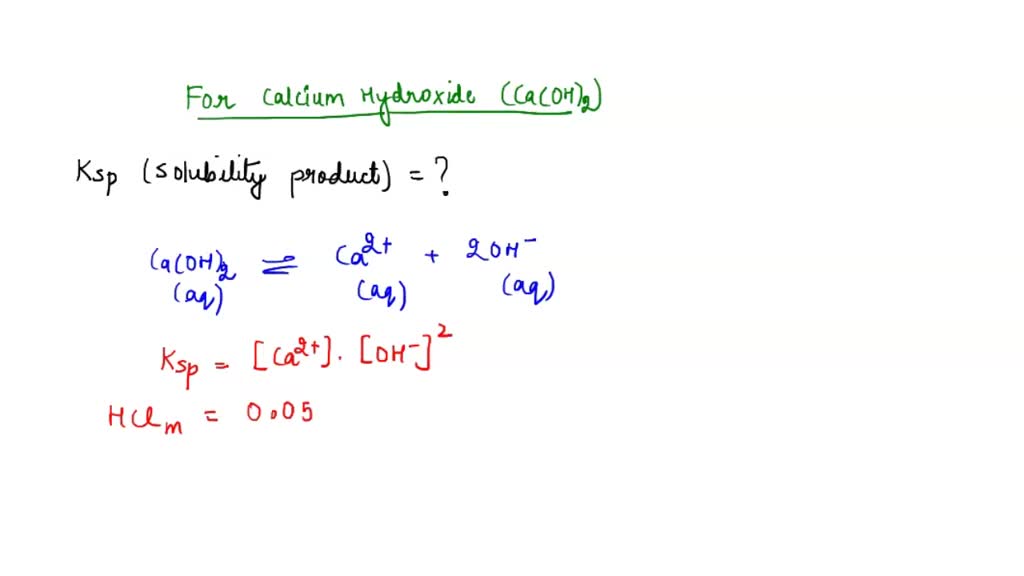 For Calcium Hydroxide (Ca(OH)2)
Ksp (solubility product) = ?
Ca(OH)2 ⇌ Ca2+ + 2OH−
(aq) (aq) (aq)
Ksp = [Ca2+]. [OH−]2
HClm = 0.05